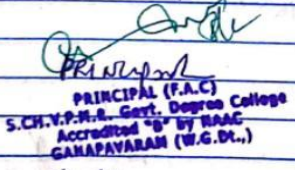 Principal
PRINCIPAL (F.A.C)
S.CH.V.P.M.R. Govt. Degree College
Accredited "B" by NAAC
GANAPAVARAM (W.G.Dt.,)